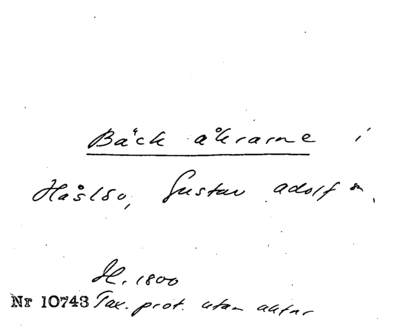 Bäck åkrarne i
Håslöv, Gustav Adolf sn.
H. 1800
Nr 10743 Tax. prot. utan aktnr